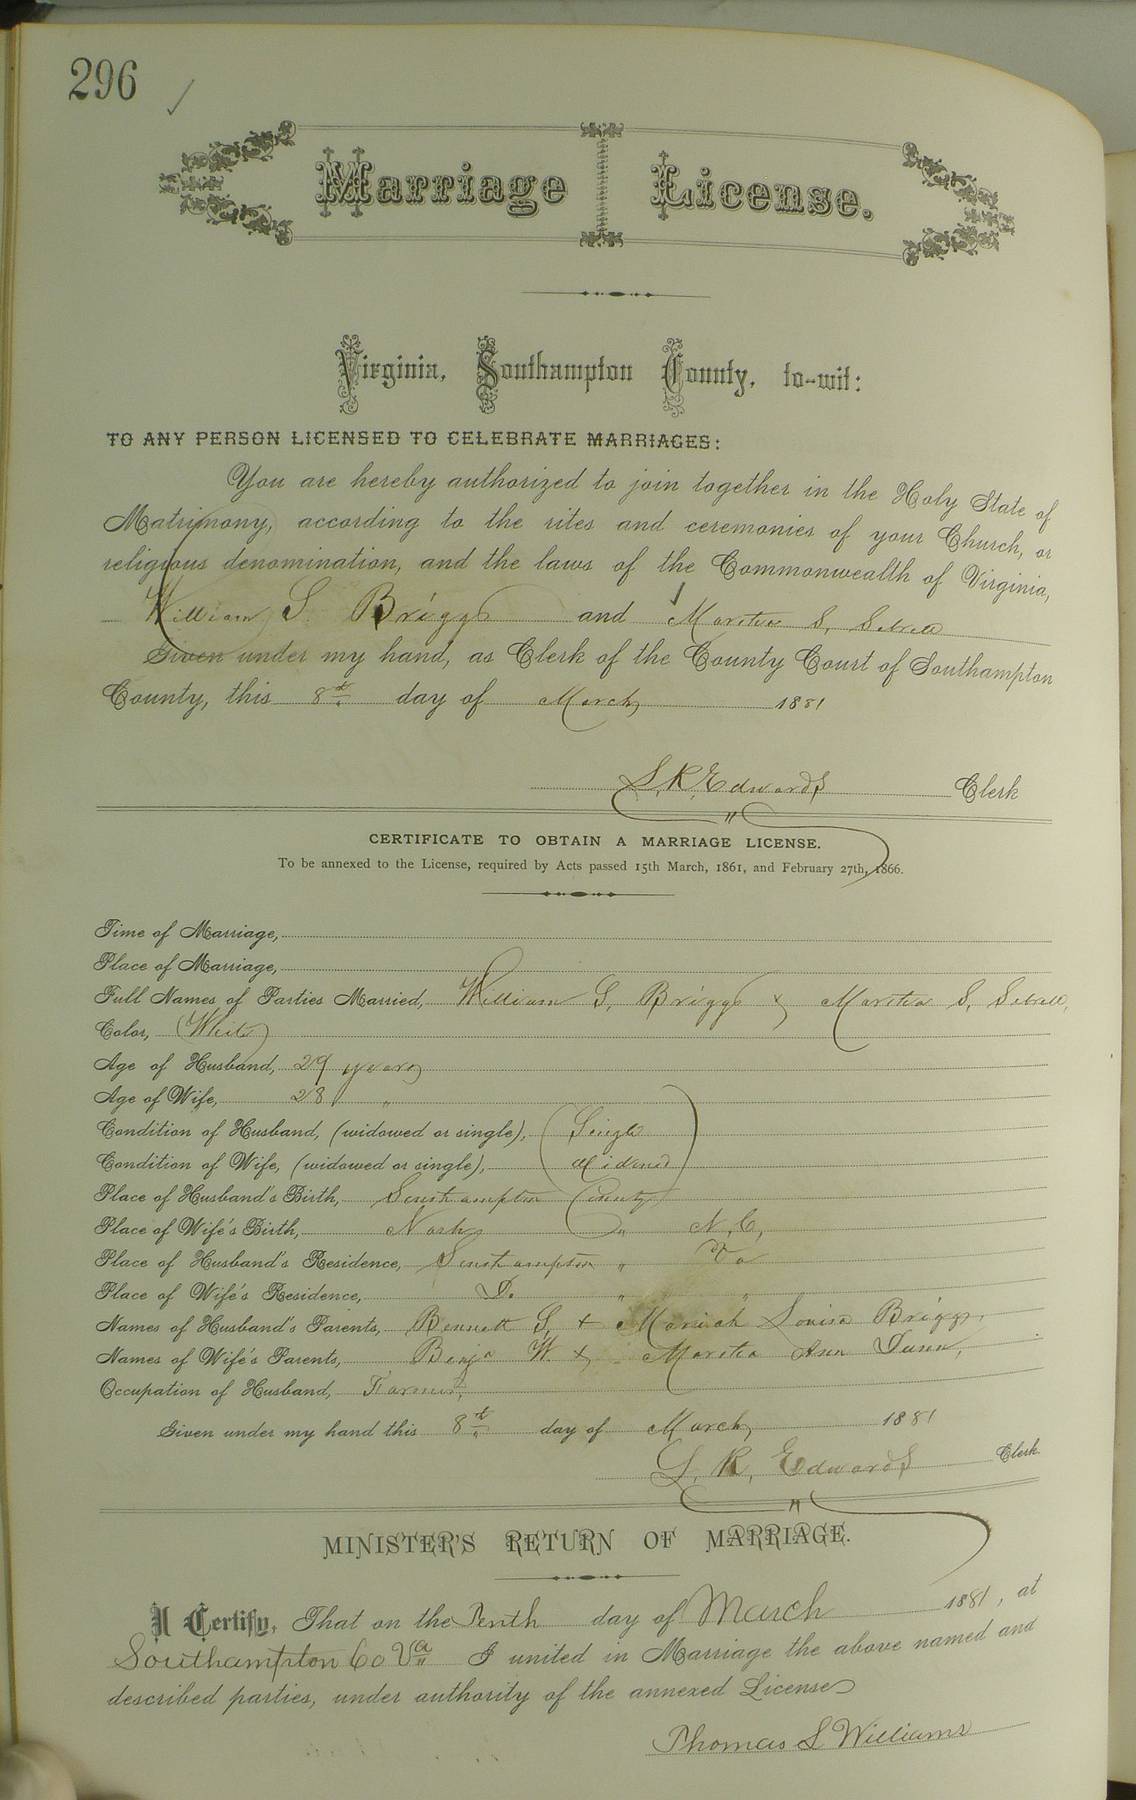 296
Marriage License.
Virginia, Southampton County, to-wit:
TO ANY PERSON LICENSED TO CELEBRATE MARRIAGES:
You are hereby authorized to join together in the Holy State of
Matrimony, according to the rites and ceremonies of your Church, or
religious denomination, and the laws of the Commonwealth of Virginia,
William S. Briggs and Martha S. Sebrell
Given under my hand, as Clerk of the County Court of Southampton
County, this 8th day of March 1881
L. R. Edwards Clerk
CERTIFICATE TO OBTAIN A MARRIAGE LICENSE.
To be annexed to the License, required by Acts passed 15th March, 1861, and February 27th, 1866.
Time of Marriage,
Place of Marriage,
Full Names of Parties Married, William S. Briggs & Martha S. Sebrell,
Color, (White)
Age of Husband, 29 years
Age of Wife, 28 "
Condition of Husband, (widowed or single), Single
Condition of Wife, (widowed or single), Widowed
Place of Husband's Birth, Southampton County
Place of Wife's Birth, Nash " N. C,
Place of Husband's Residence, Southampton " Va
Place of Wife's Residence, Do " "
Names of Husband's Parents, Bennett S. & Mariah Louisa Briggs,
Names of Wife's Parents, Benja W. & Martha Ann Dunn,
Occupation of Husband, Farmer,
Given under my hand this 8th day of March 1881
L. R. Edwards Clerk.
MINISTER'S RETURN OF MARRIAGE.
I Certify, That on the Tenth day of March 1881, at
Southampton Co Va I united in Marriage the above named and
described parties, under authority of the annexed License
Thomas S Williams